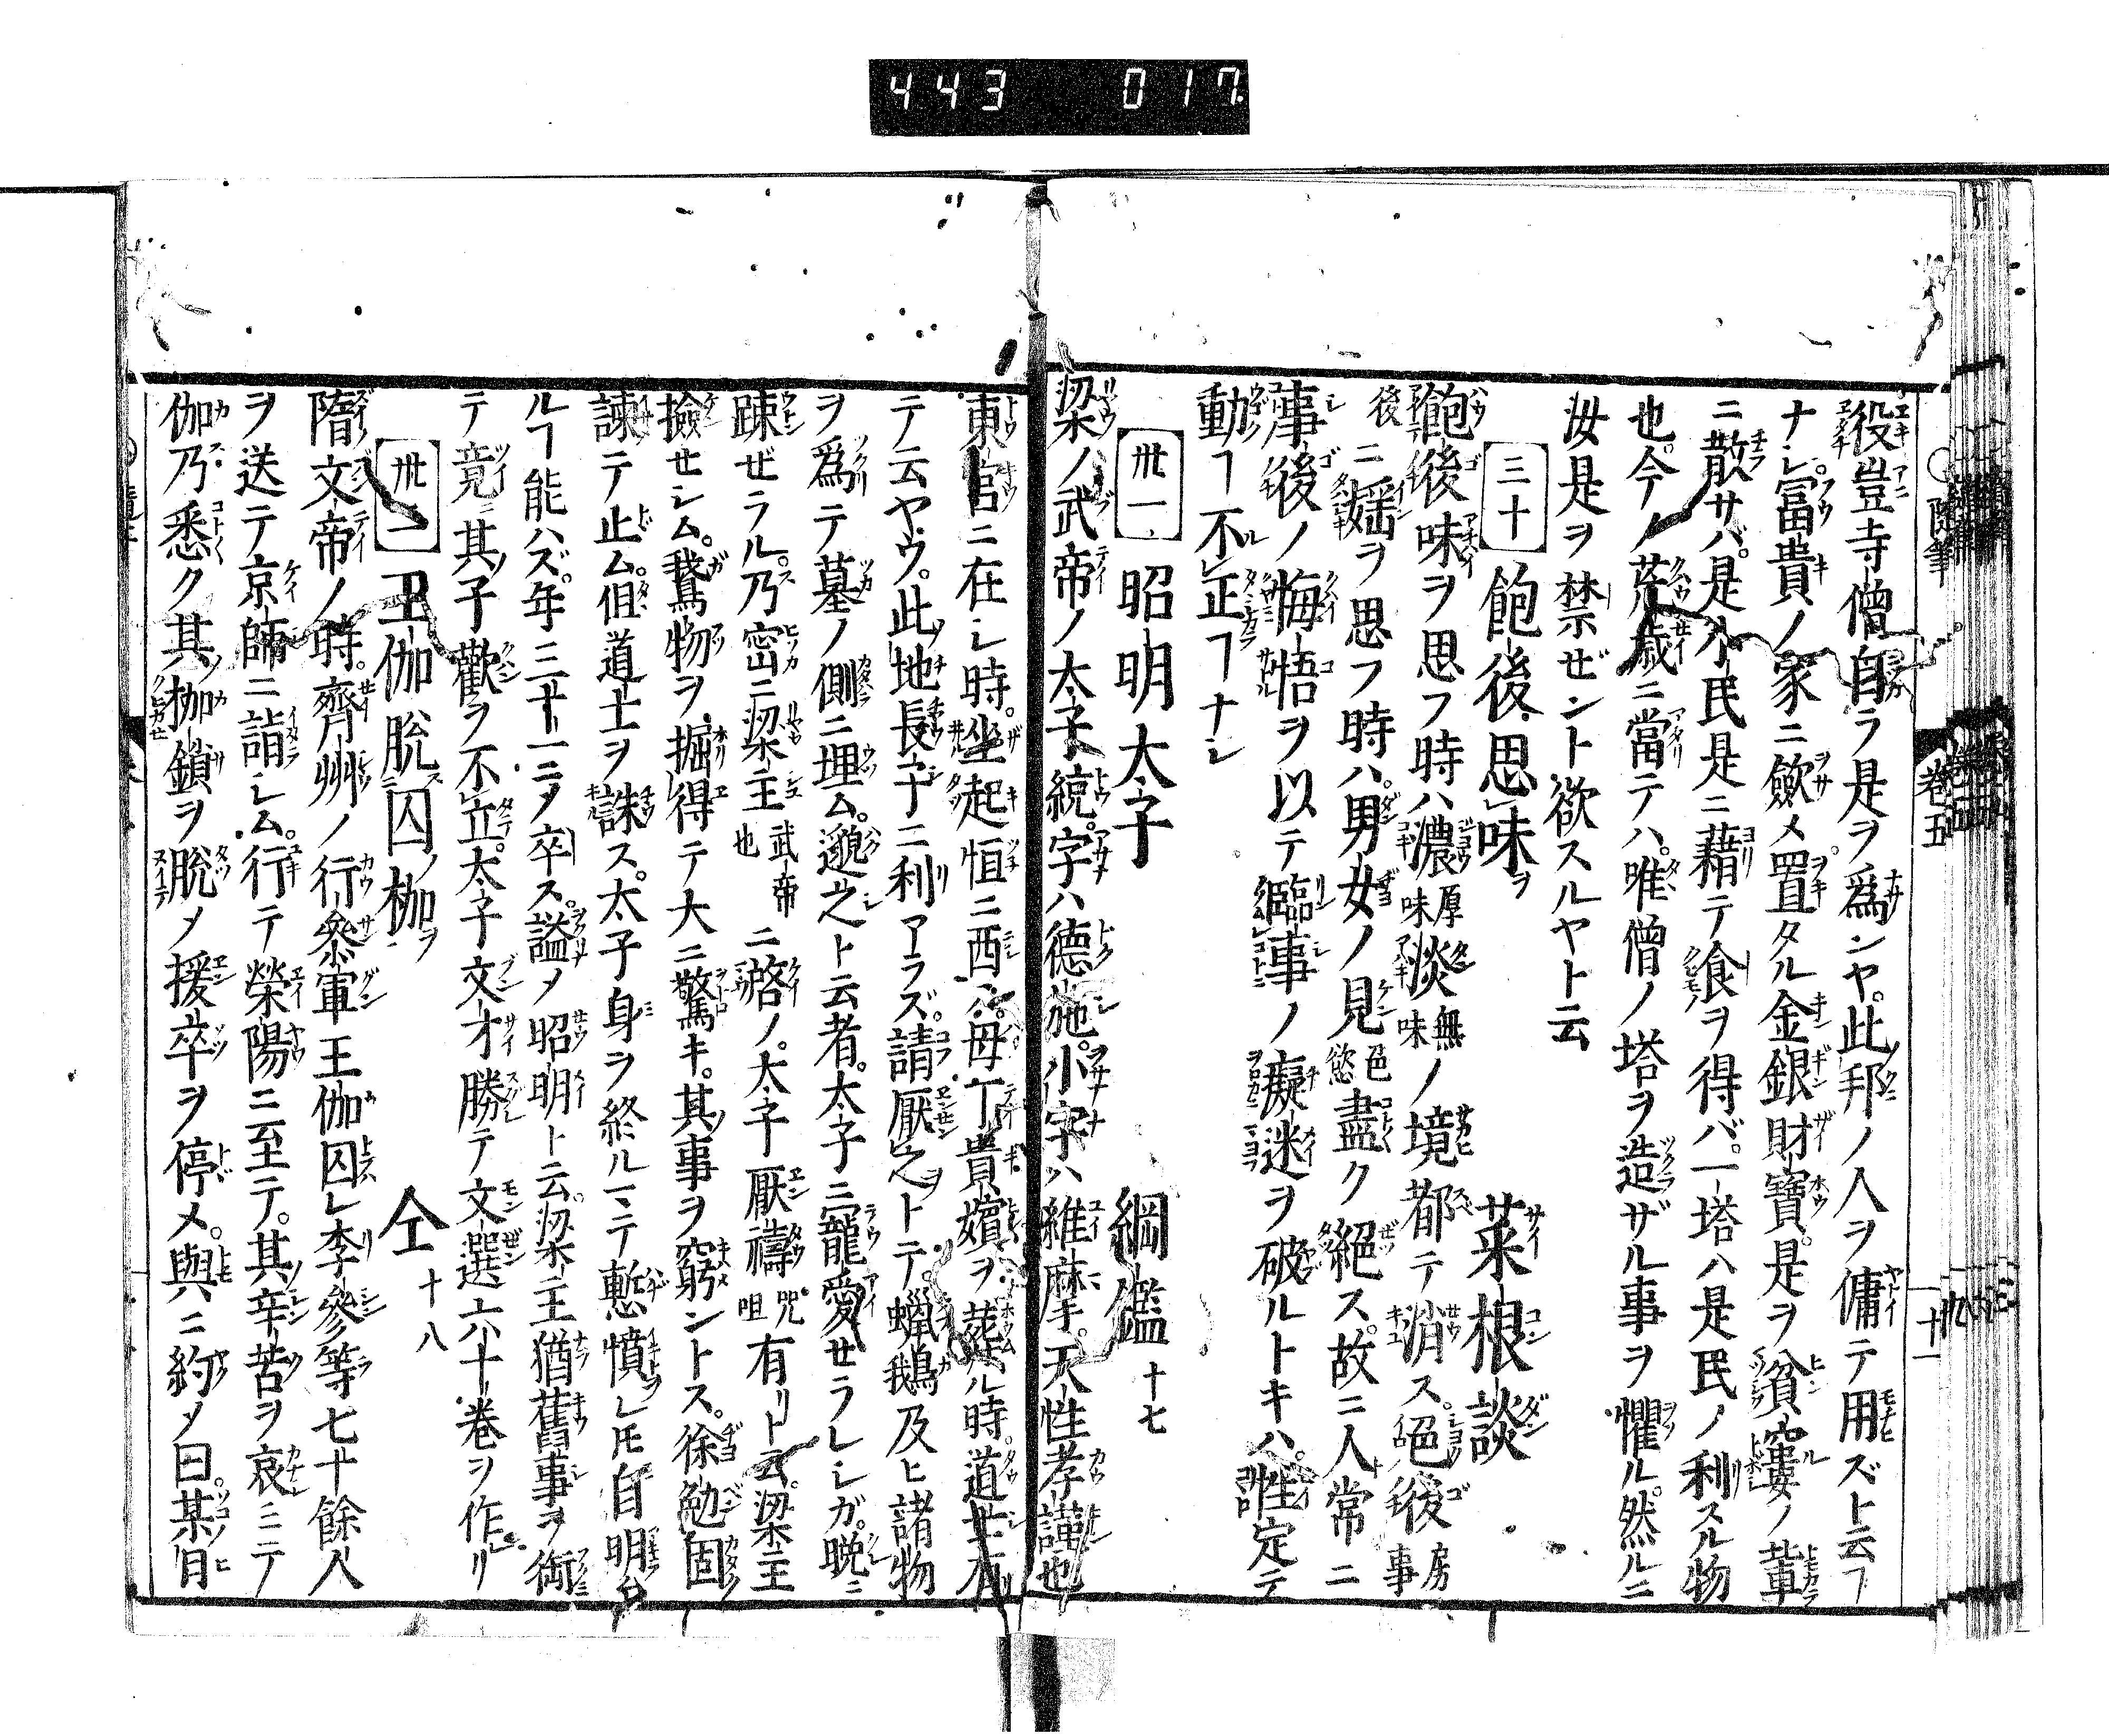 443 017.
役豈寺僧自ラ是ヲ爲ンヤ。此邦ノ人ヲ傭テ用ズト云フ
ナシ。富貴ノ家ニ斂メ置タル金銀財寶。是ヲ貧窶ノ輩
ニ散サバ。是小民是ニ藉テ食ヲ得バ。一塔ハ是民ノ利スル物
也。今ノ荒歳ニ當テハ。唯僧ノ塔ヲ造ザル事ヲ懼ル。然ルニ
汝是ヲ禁ゼント欲スルヤト云
三十 飽後思味ヲ 菜根談
飽後味ヲ思フ時ハ濃厚味淡無味ノ境都テ消ス。色後房事
後ニ婬ヲ思フ時ハ。男女ノ見色慾盡ク絕ス。故ニ人常ニ
事後ノ悔悟ヲ以テ臨事ノ癡迷ヲ破ルトキハ。性定テ
動ヿ不正ヿナシ
卅一 昭明太子 綱鑑十七
梁ノ武帝ノ太子統。字ハ德施。小字ハ維摩。天性孝謹也
東宮ニ在シ時。坐起恒ニ西ス。母丁貴嬪ヲ葬ル時。道士有
テ云ヤウ。此地長子ニ利アラズ。請厭之トテ。蠟鵝及ヒ諸物
ヲ爲テ墓ノ側ニ埋ム。邈之ト云者。太子ニ寵愛セラレシガ。晩ニ
踈ゼラル。乃密ニ梁主武帝也ニ啓ノ。太子厭禱咒咀有リト云。梁主
撿セシム。鵞物ヲ掘得テ大ニ驚キ。其事ヲ窮ントス。徐勉固
諫テ止ム。但道士ヲ誅ス。太子身ヲ終ルニテ慙憤レ𪜈自明ム
ルヿ能ハズ。年三十一ニノ卒ス。謚メ昭明ト云。梁主猶舊事ヲ銜
テ竟ニ其子歡ヲ不立。太子文才勝テ文選六十巻ヲ作リ
卅二 王伽脫囚ノ枷ヲ 仝十八
隋文帝ノ時。齊州ノ行參軍王伽囚レ李參等七十餘人
ヲ送テ京師ニ詣シム。行テ榮陽ニ至テ。其辛苦ヲ哀ミテ
伽乃悉ク其枷鎖ヲ脫メ援卒ヲ停メ。與ニ約メ曰。某月
巻五
十一